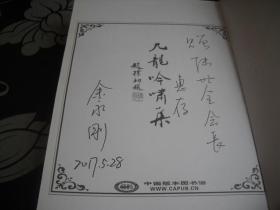 赠陆世全会长
惠存
九龙吟啸集
余永刚
2017.5.28
中国版本图书馆
WWW.CAPUB.CN